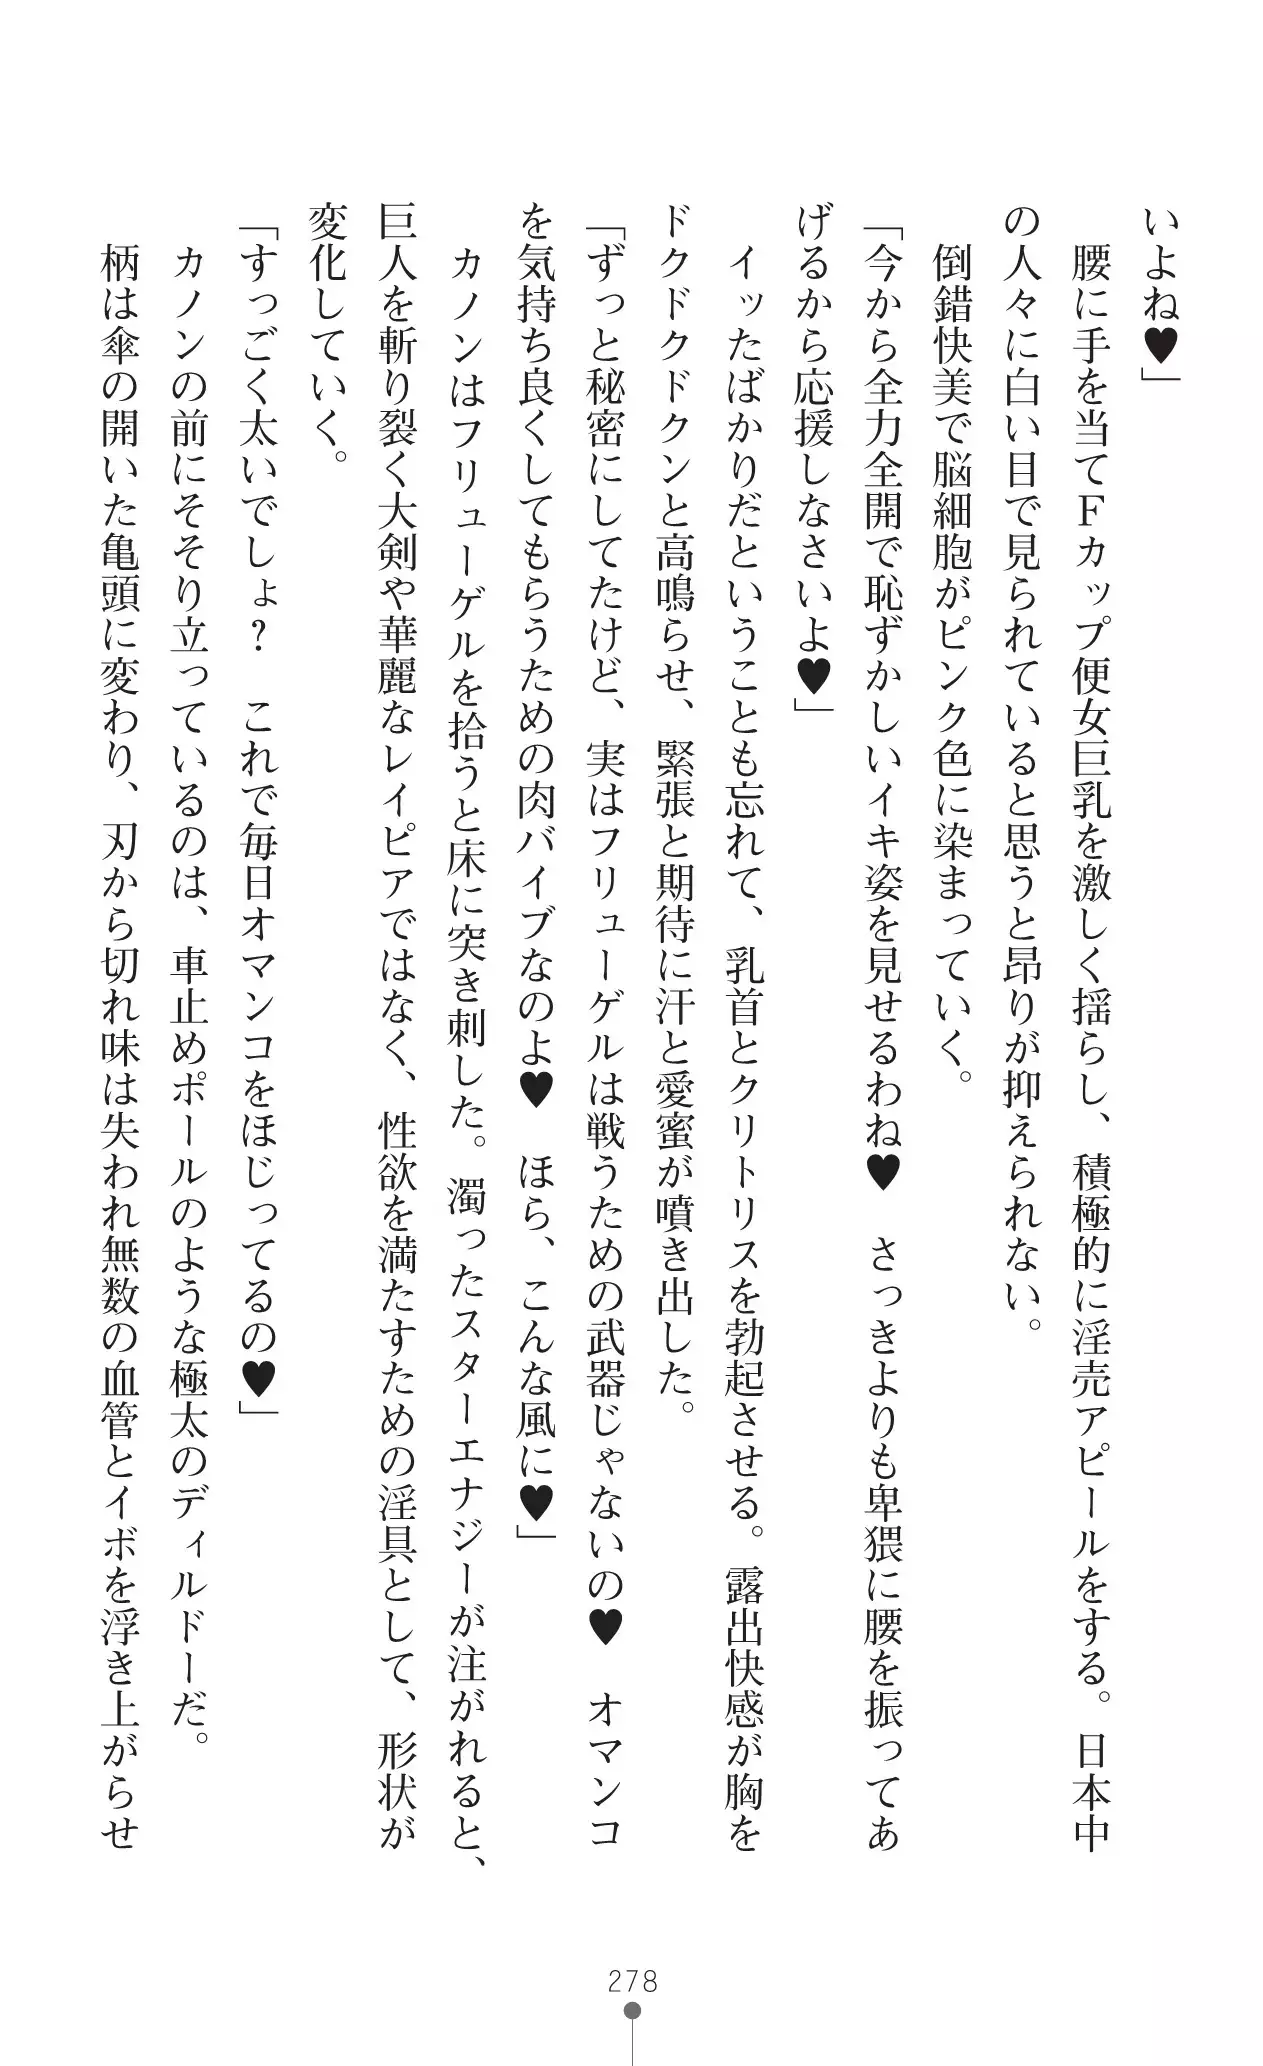 いよね♥」
　腰に手を当てＦカップ便女巨乳を激しく揺らし、積極的に淫売アピールをする。日本中
の人々に白い目で見られていると思うと昂りが抑えられない。
　倒錯快美で脳細胞がピンク色に染まっていく。
「今から全力全開で恥ずかしいイキ姿を見せるわね♥　さっきよりも卑猥に腰を振ってあ
げるから応援しなさいよ♥」
　イッたばかりだということも忘れて、乳首とクリトリスを勃起させる。露出快感が胸を
ドクドクドクンと高鳴らせ、緊張と期待に汗と愛蜜が噴き出した。
「ずっと秘密にしてたけど、実はフリューゲルは戦うための武器じゃないの♥　オマンコ
を気持ち良くしてもらうための肉バイブなのよ♥　ほら、こんな風に♥」
　カノンはフリューゲルを拾うと床に突き刺した。濁ったスターエナジーが注がれると、
巨人を斬り裂く大剣や華麗なレイピアではなく、性欲を満たすための淫具として、形状が
変化していく。
「すっごく太いでしょ？　これで毎日オマンコをほじってるの♥」
　カノンの前にそそり立っているのは、車止めポールのような極太のディルドーだ。
　柄は傘の開いた亀頭に変わり、刃から切れ味は失われ無数の血管とイボを浮き上がらせ
278